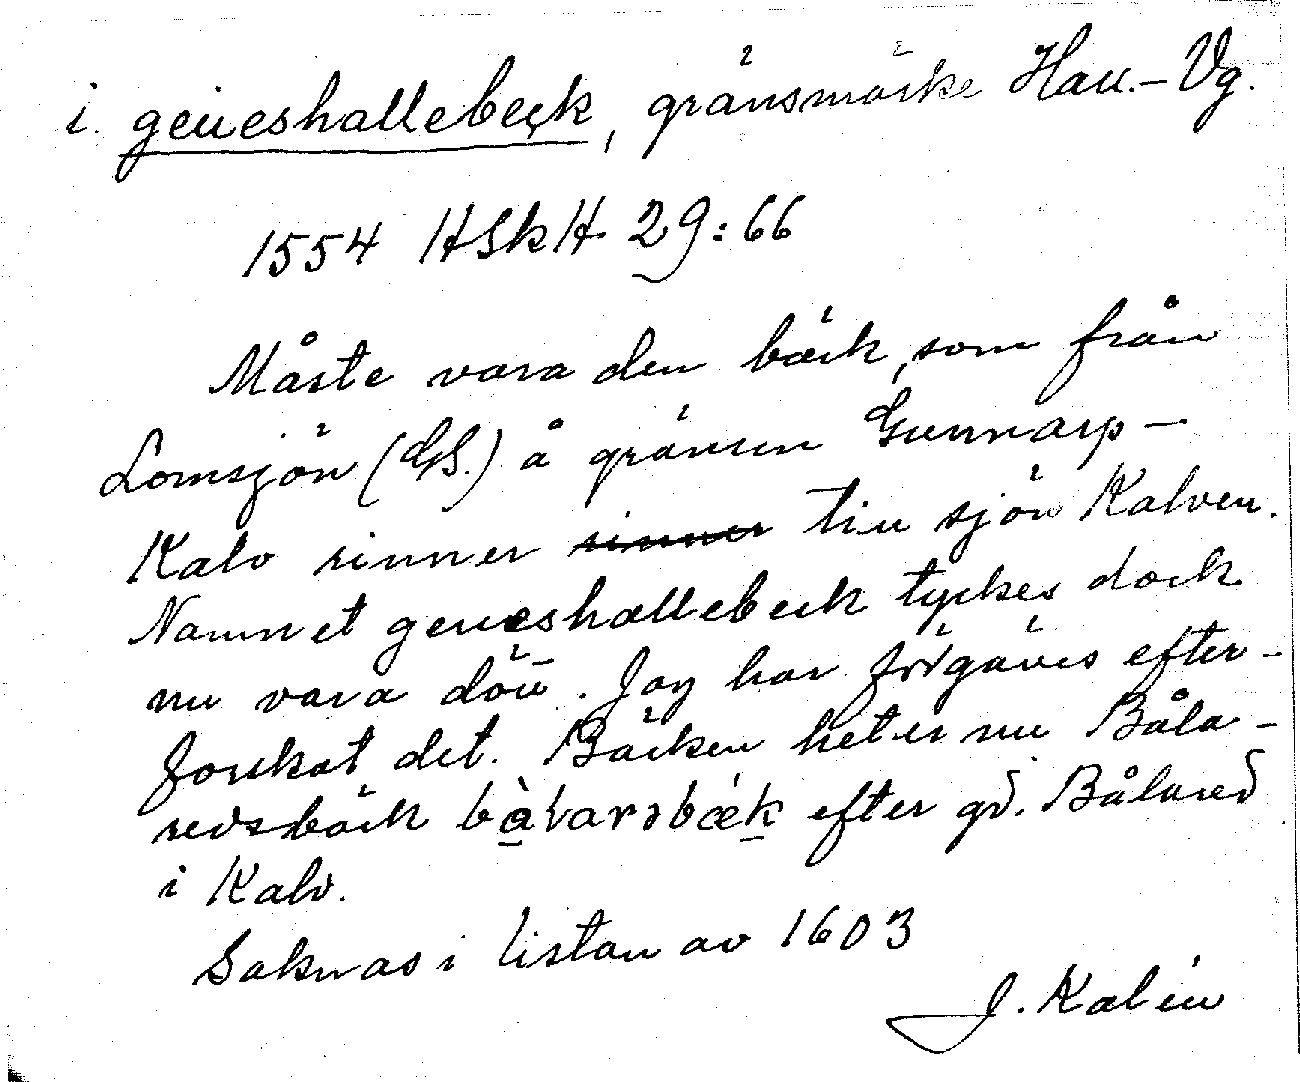 i geueshallebeck, gränsmärke Hall.-Vg.
1554 HSkH 29:66
Måste vara den bäck, som från
Lomsjön (GS.) å gränsen Gunnarp-
Kalv rinner rinner till sjön Kalven.
Namnet geueshallebeck tyckes dock
nu vara dött. Jag har förgäves efter-
forskat det. Bäcken heter nu Båla-
redsbäck efter gd. Bålared
i Kalv.
Saknas i listan av 1603
J. Kalén